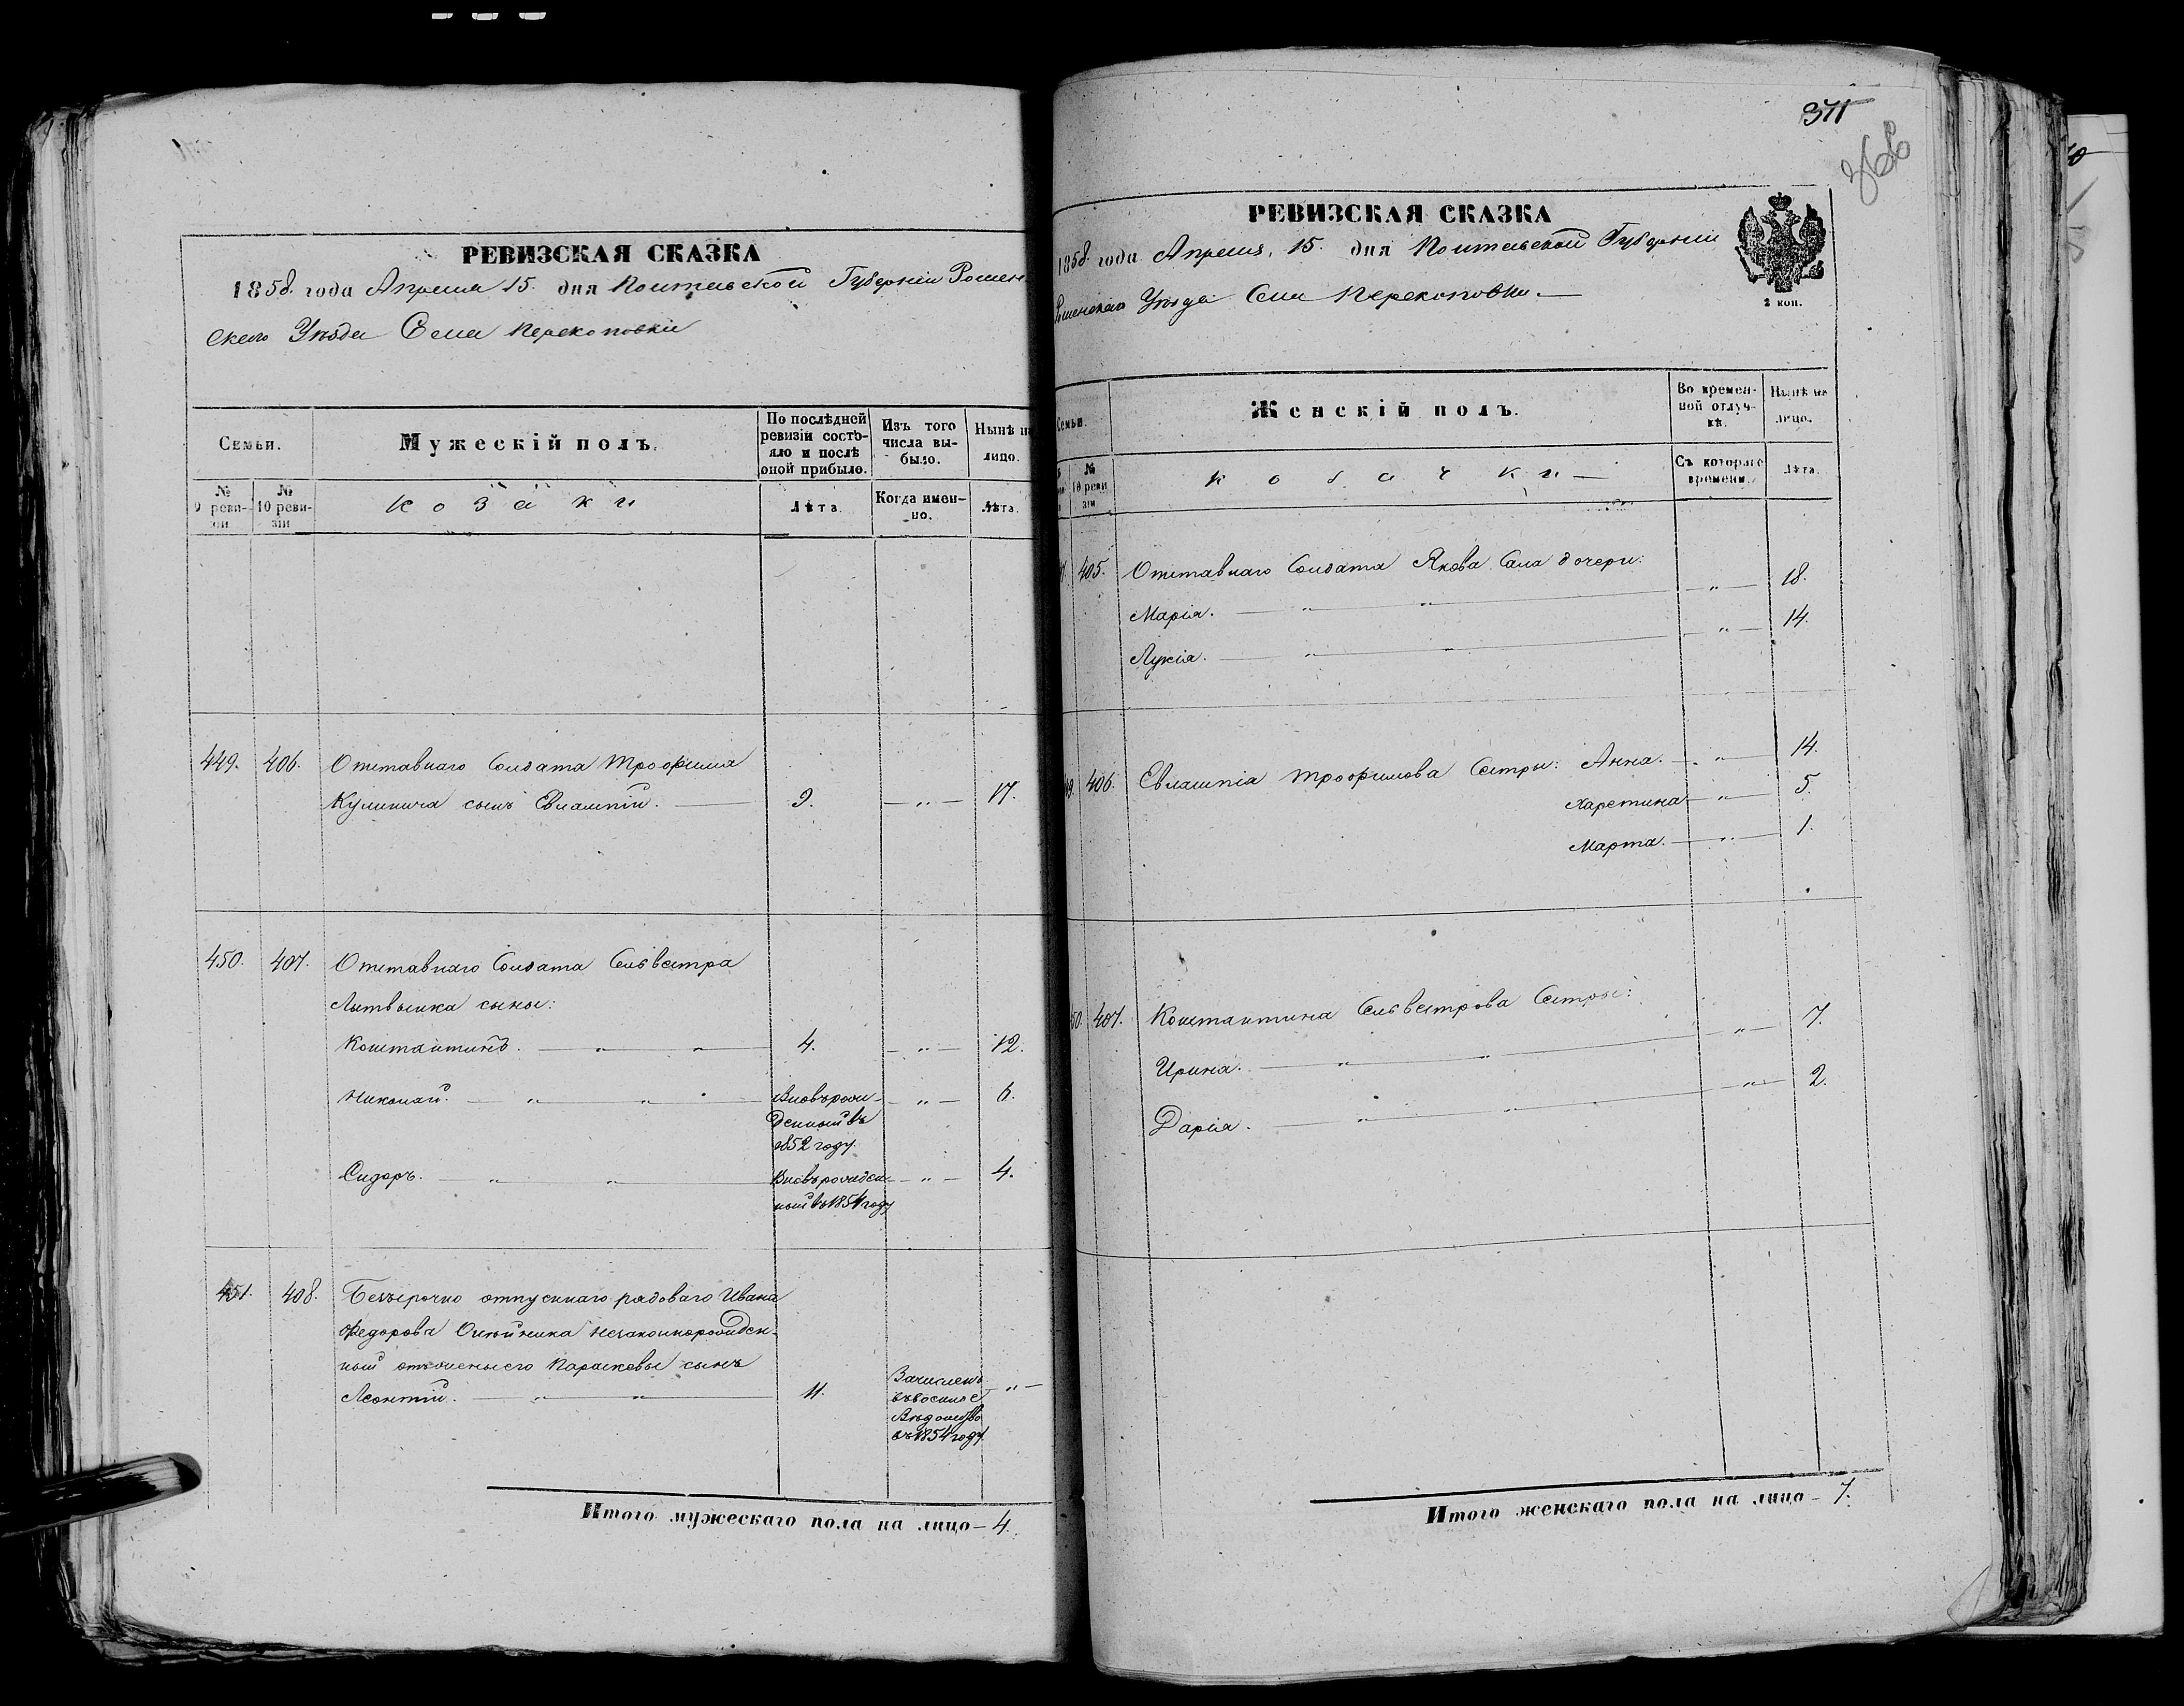 РЕВИЗСКАЯ СКАЗКА
1858. года Апреля 15. дня Полтавской Губерніи Ромен-
скаго Уѣзда Села Перекоповки
Семьи.
Мужескій полъ.
По послѣдней ревизіи состѣ-яло и послѣ оной прибыло.
Изъ того числа вы-было.
Нынѣ на лицо.
№ 9 реви-зіи
№ 10 реви-зіи
Козаки
Лѣта.
Когда имен-но.
Лѣта.
449. 406. Отставнаго Солдата Трофима
Кулинича сынъ Евлампій. 9. — „ — 17.
450. 407. Отставнаго Солдата Сельвестра
Литвынка сыны:
Константинъ. — „ — „ — 4. — „ — 12.
Николай. — „ — „ — Вновьрож-
денный въ
1852 году. — „ — 6.
Сидоръ. — „ — „ — Вновьрожден-
ный въ 1854 году — „ — 4.
451. 408. Безсрочно отпускнаго рядоваго Ивана
Федорова Олѣйника незаконнорожден-
ный отъ жены его Парасковьи сынъ
Леонтій. — „ — „ — 11. Зачисленъ
въ военное
Вѣдомство
въ 1854 году. — „ —
Итого мужескаго пола на лицо — 4.
371
РЕВИЗСКАЯ СКАЗКА
1858. года Апреля, 15. дня Полтавской Губерніи
Роменскаго Уѣзда Села Перекоповки. —
2 коп.
Семьи.
Женскій полъ.
Во времен-ной отлуч-кѣ.
Нынѣ на лицо.
№ 10 реви зіи
козачки —
Съ котораго времени.
Лѣта.
405. Отставнаго Солдата Якова Сала дочери:
Марія. — „ — „ — „ — 18.
Лукія. — „ — „ — „ — 14.
406. Евлампія Трофимова Сестры: Анна. — „ — 14.
Харетина — „ — 5.
Марта. — „ — 1.
407. Константина Сельвестрова Сестры:
Ирина. — „ — „ — „ — 7.
Дарія. — „ — „ — „ — 2.
Итого женскаго пола на лицо — 7.